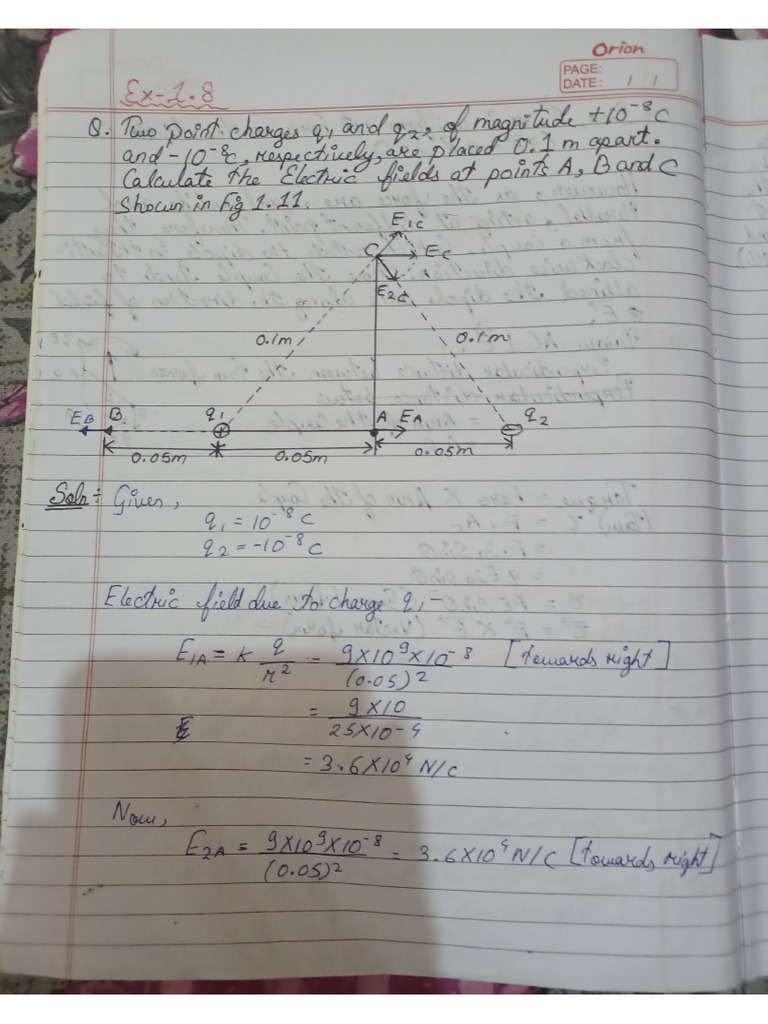 Orion
PAGE:
DATE: / /
Ex-1.8
Q. Two point charges q1 and q2, of magnitude +10⁻⁸C
and -10⁻⁸C, respectively, are placed 0.1 m apart.
Calculate the Electric fields at points A, B and C
Shown in Fig 1.11.
E1C
C EC
E2C
0.1m 0.1m
EB B q1 A EA q2
0.05m 0.05m 0.05m
Soln÷ Given,
q1 = 10⁻⁸ C
q2 = -10⁻⁸ C
Electric field due to charge q1 -
E1A = K q/r² = 9×10⁹×10⁻⁸/(0.05)² [towards right]
= 9×10/25×10-4
= 3.6×10⁴ N/C
Now,
E2A = 9×10⁹×10⁻⁸/(0.05)² = 3.6×10⁴ N/C [towards right]